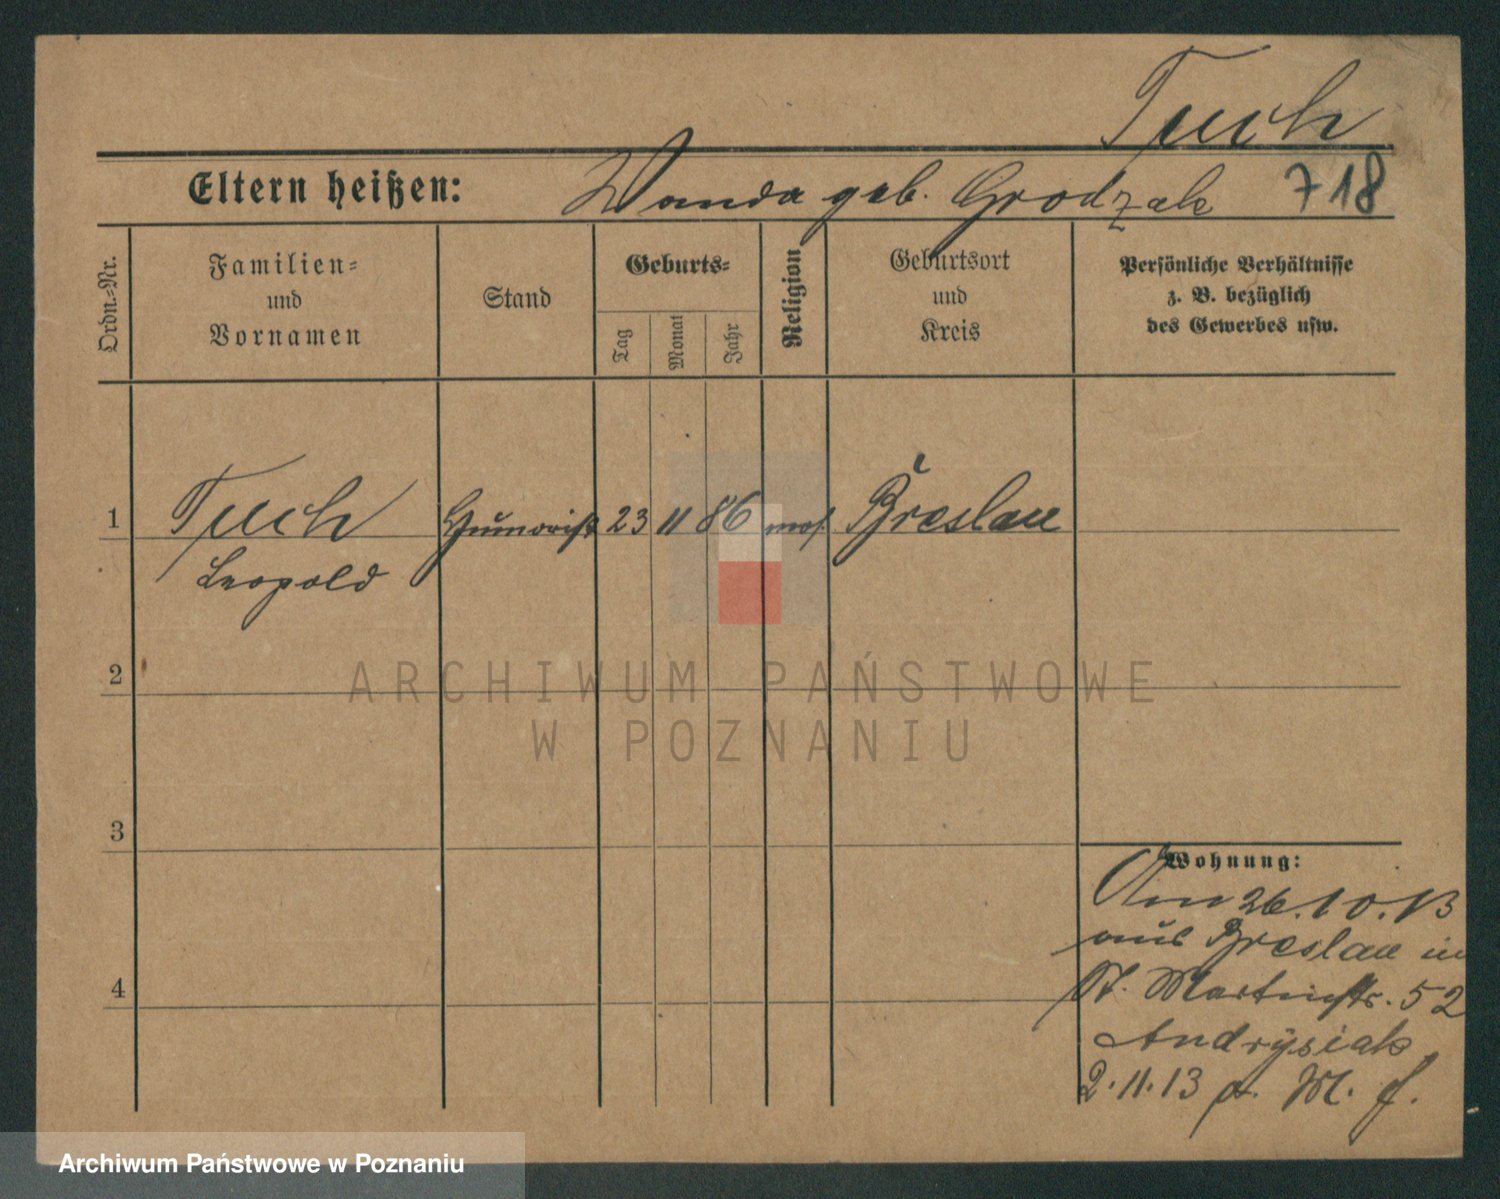 Tuch
Eltern heißen: Wanda geb. Grodzak 718
Ordn.-Nr.
Familien-
und
Vornamen
Stand
Geburts-
Tag
Monat
Jahr
Religion
Geburtsort
und
Kreis
Persönliche Verhältnisse
z. B. bezüglich
des Gewerbes usw.
1 Tuch Humorist 23 11 86 mos. Breslau
Leopold
2
ARCHIWUM PAŃSTWOWE
W POZNANIU
3
Wohnung:
Am 26.10.13
aus Breslau in
St. Martinstr. 52
Andrysiak
4
2.11.13 a. M. f.
Archiwum Państwowe w Poznaniu